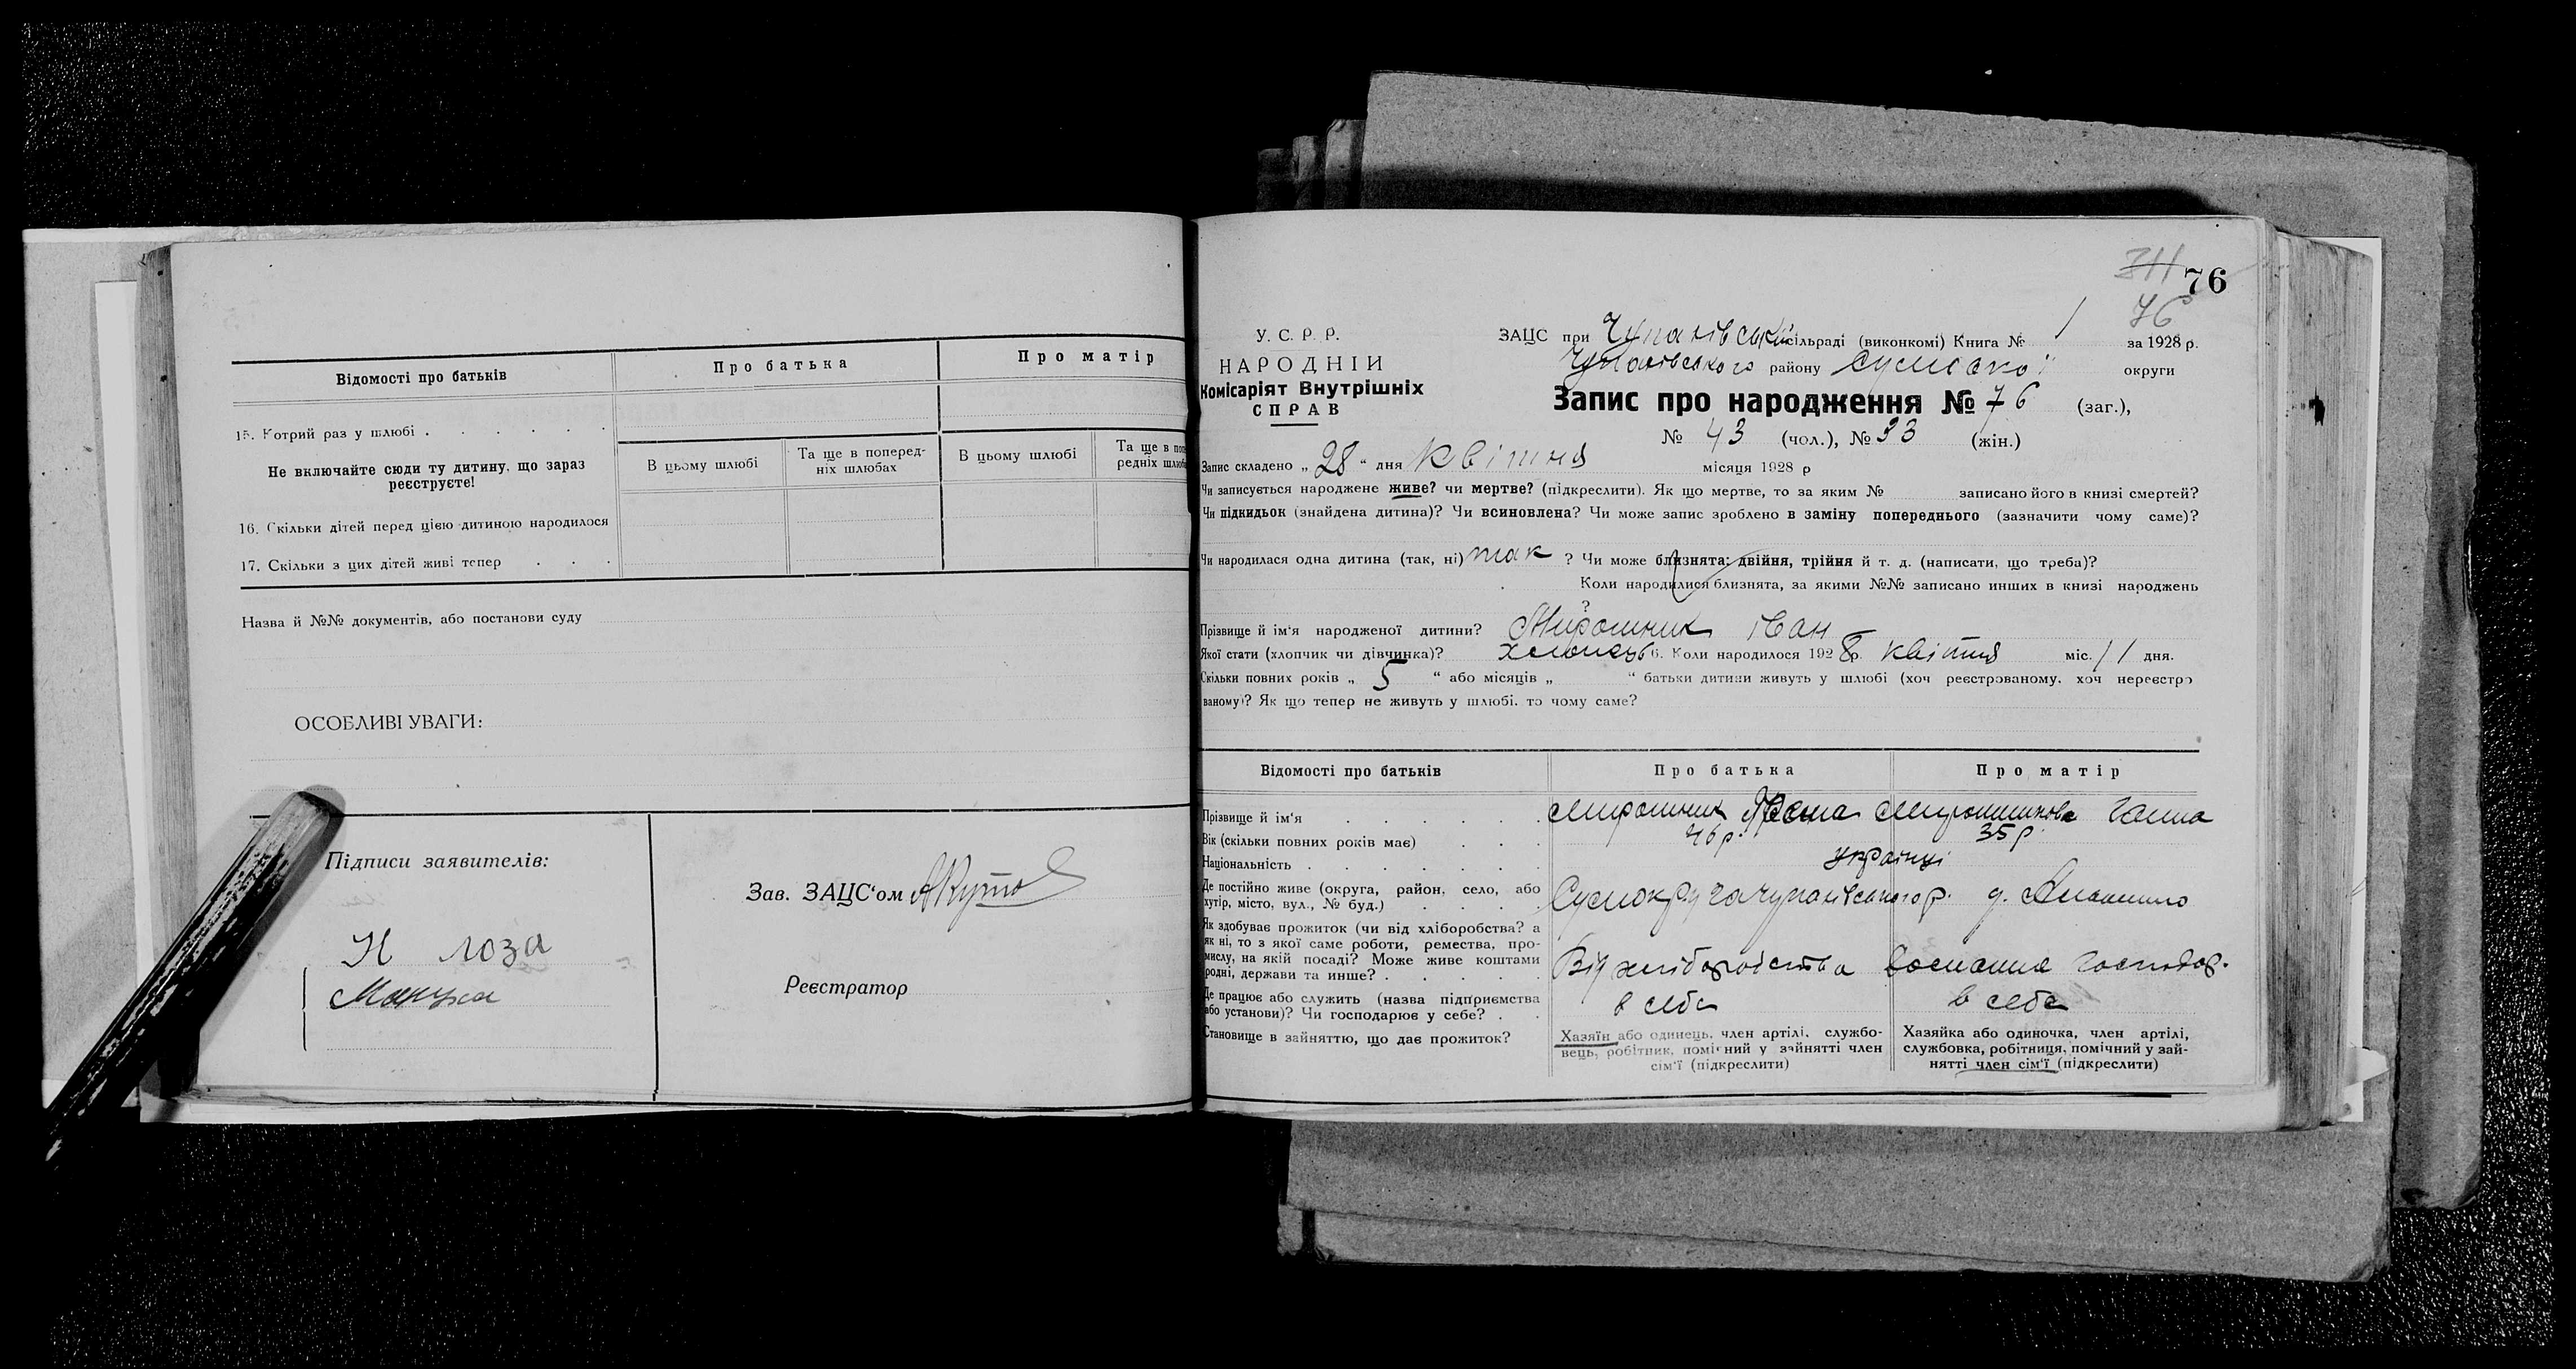 Відомості про батьків
Про батька
Про матір
15. Котрий раз у шлюбі . . . . . .
Не включайте сюди ту дитину, що зараз
реєструєте!
В цьому шлюбі
Та ще в поперед-
ніх шлюбах
В цьому шлюбі
Та ще в
редніх
16. Скільки дітей перед цією дитиною народилося
17. Скільки з цих дітей живі тепер . . .
Назва й №№ документів, або постанови суду
ОСОБЛИВІ УВАГИ:
Підписи заявителів:
Н Лоза
Зав. ЗАЦС'ом
Реєстратор
311 76
76
У. С. Р. Р.
НАРОДНІЙ
Комісаріят Внутрішніх
СПРАВ
ЗАЦС при Чупахівській сільраді (виконкомі) Книга № 1 за 1928 р.
Чупахівського району Сумської округи
Запис про народження № 76 (заг.),
№ 43 (чол.), № 33 (жін.)
Запис складено „ 28 " дня квітня місяця 1928 р
Чи записується народжене живе? чи мертве? (підкреслити). Як що мертве, то за яким № записано його в книзі смертей?
Чи підкидьок (знайдена дитина)? Чи всиновлена? Чи може запис зроблено в заміну попереднього (зазначити чому саме)?
Чи народилася одна дитина (так, ні) так ? Чи може близнята: двійня, трійня й т. д. (написати, що треба)?
Коли народилися близнята, за якими №№ записано инших в книзі народжень
?
Прізвище й ім'я народженої дитини? Мирошник Іван
Якої стати (хлопчик чи дівчинка)? хлопець 6. Коли народилося 1928 р. квітня міс. 11 дня.
Скільки повних років „ 5 " або місяців „ " батьки дитини живуть у шлюбі (хоч реєстрованому, хоч нереєстро
ваному)? Як що тепер не живуть у шлюбі, то чому саме?
Відомості про батьків
Про батька
Про матір
Прізвище й ім'я . . . . . . Мирошник Мирошникова Ганна
Вік (скільки повних років має) . . . 46 р. 35 р
Національність . . . . . . . українці
Де постійно живе (округа, район, село, або
хутір, місто, вул., № буд.) . . . .
Як здобуває прожиток (чи від хліборобства? а
як ні, то з якої саме роботи, ремества, про-
мислу, на якій посаді? Може живе коштами
родні, держави та инше? . . . . .
Від хліборобства домашня господар.
Де працює або служить (назва підприємства
або установи)? Чи господарює у себе? . .
в себе
в себе
Становище в зайняттю, що дає прожиток?
Хазяїн або одинець, член артілі, службо-
вець, робітник, помічний у зайнятті член
сім'ї (підкреслити)
Хазяйка або одиночка, член артілі,
службовка, робітниця, помічний у зай-
нятті член сім'ї (підкреслити)